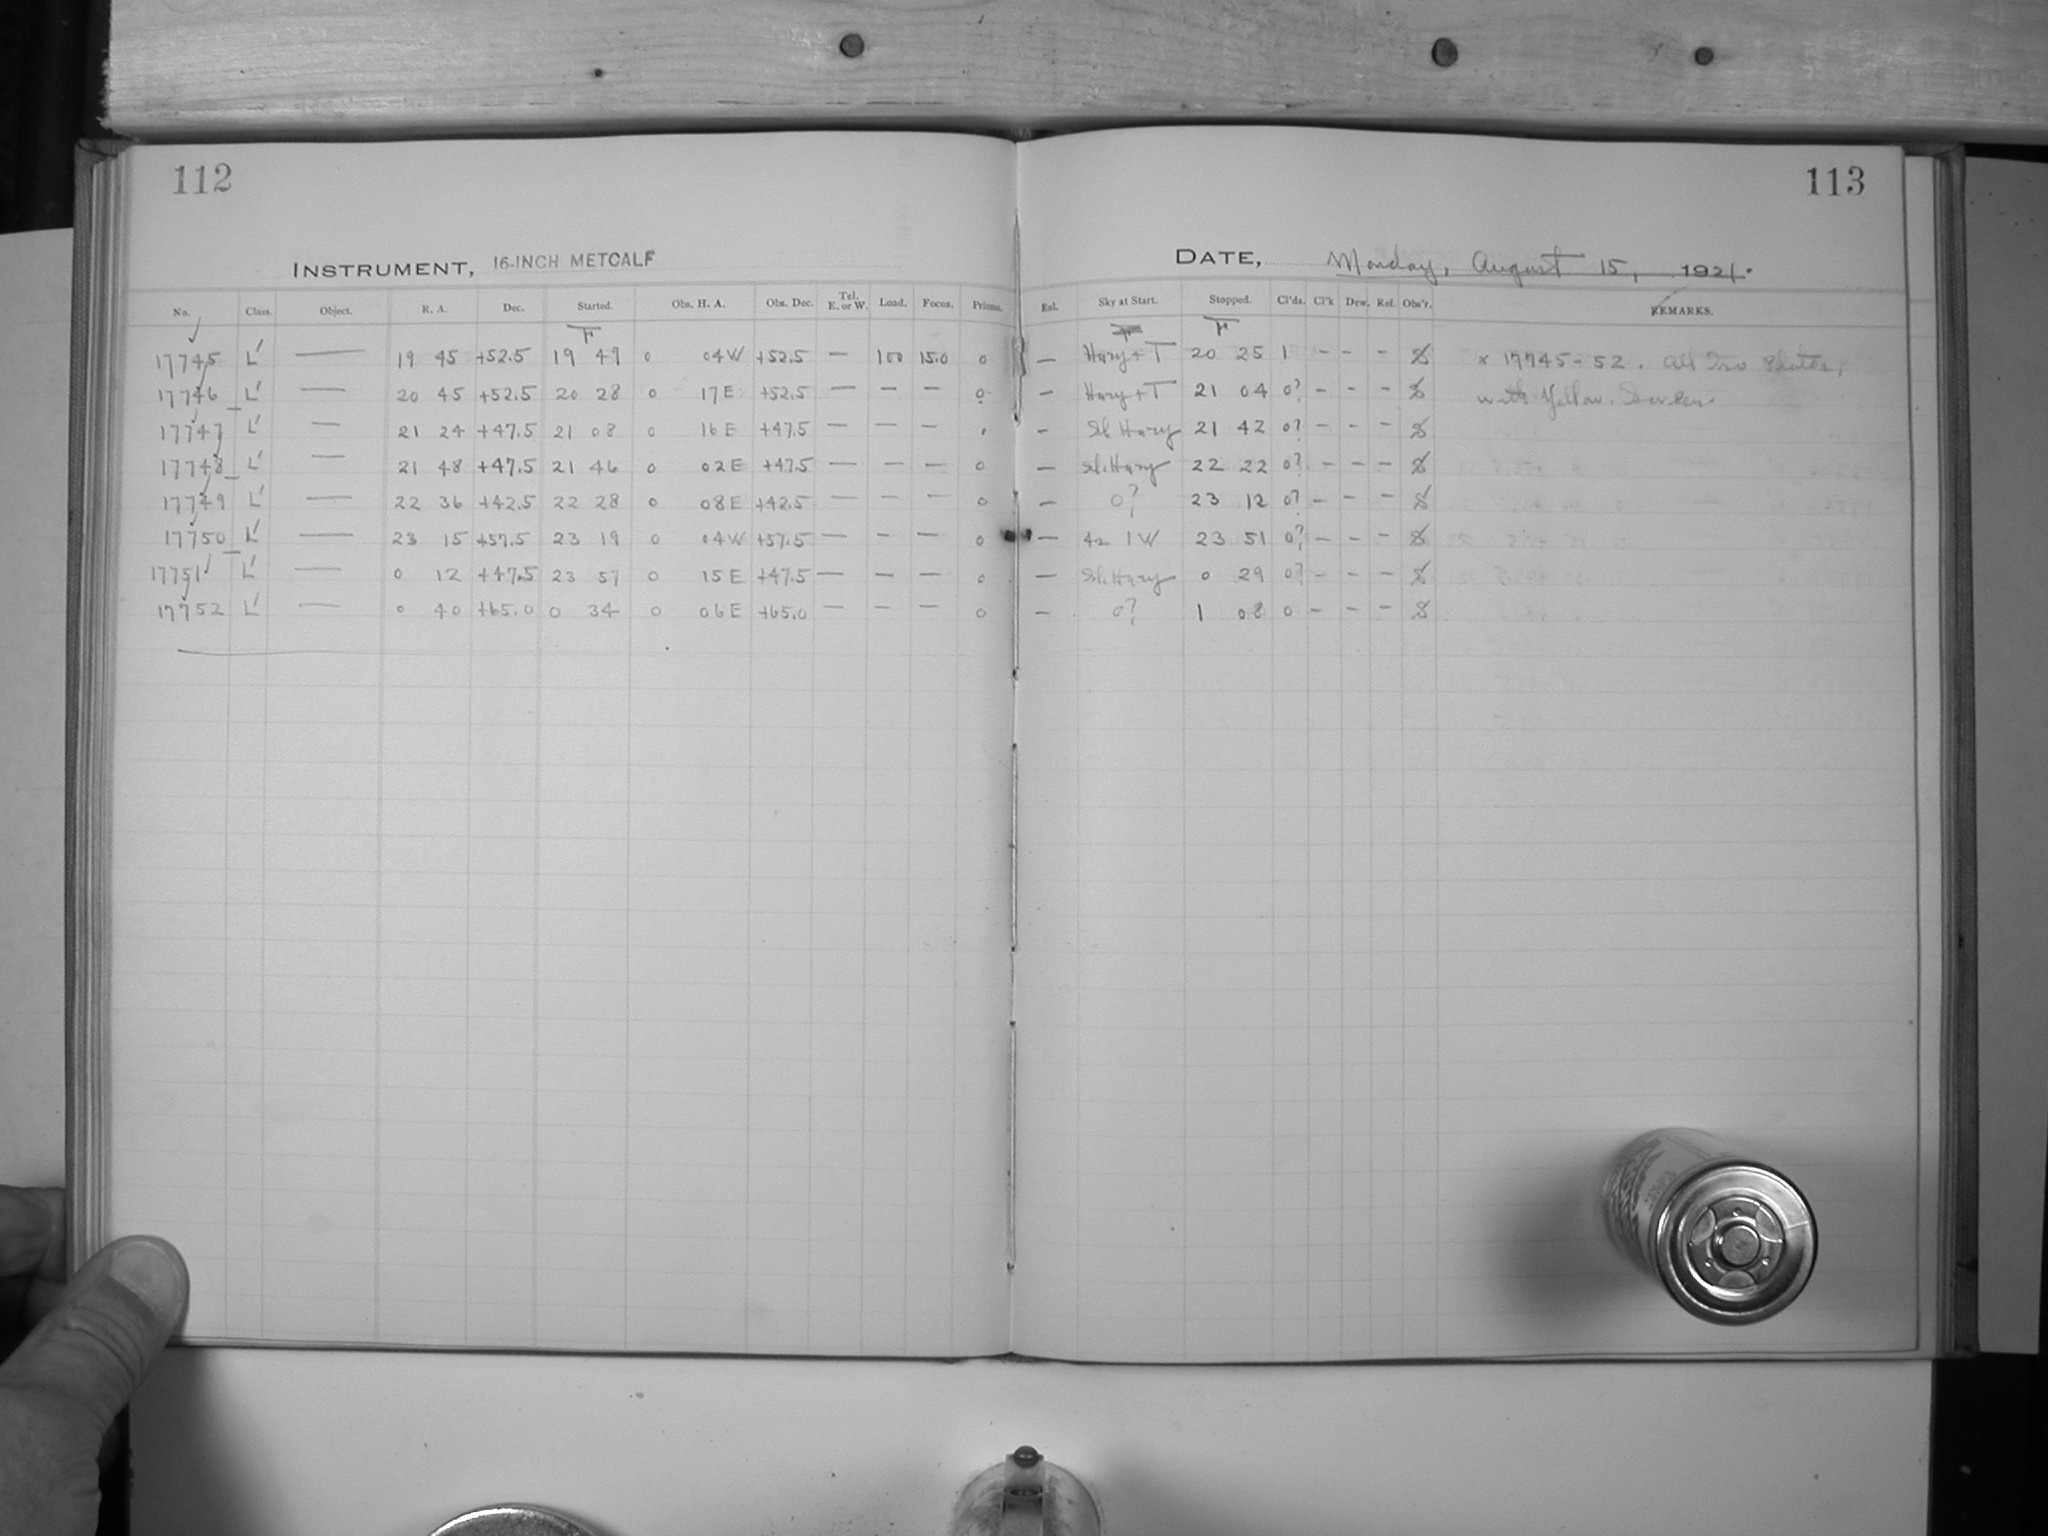 112
113
INSTRUMENT, 16-INCH METCALF
DATE, Monday, August 15, 1921.
No. Class. Object. R. A. Dec. Started. Obs. H. A. Obs. Dec. Tel. E. or W. Load. Focus. Prisms. Exl. Sky at Start. Stopped. Cl'ds. Cl'k Dew. Ref. Obs'r. REMARKS.
F F F
17745 L' — 19 45 +52.5 19 49 0 04W +52.5 — 100 15.0 0 — Hazy + T 20 25 1 - - - S x 17745-52. All Iso Plates,
17746 L' — 20 45 +52.5 20 28 0 17E +52.5 — — — 0 — Hazy + T 21 04 0? - - - S with Yellow Screen.
17747 L' — 21 24 +47.5 21 08 0 16E +47.5 — — — - Sl. Hazy 21 42 0? - - - S
17748 L' — 21 48 +47.5 21 46 0 02E +47.5 — — — 0 — Sl. Hazy 22 22 0? - - - S
17749 L' — 22 36 +42.5 22 28 0 08E +42.5 — — — 0 — 0? 23 12 0? - - - S
17750 L' — 23 15 +57.5 23 19 0 04W +57.5 — — — 0 — 1W 23 51 0? - - - S
17751 L' — 0 12 +47.5 23 57 0 15E +47.5 — — — 0 — Sl. Hazy 0 29 0? - - - S
17752 L' — 0 40 +65.0 0 34 0 06E +65.0 — — — 0 — 0? 1 08 0 - - - S